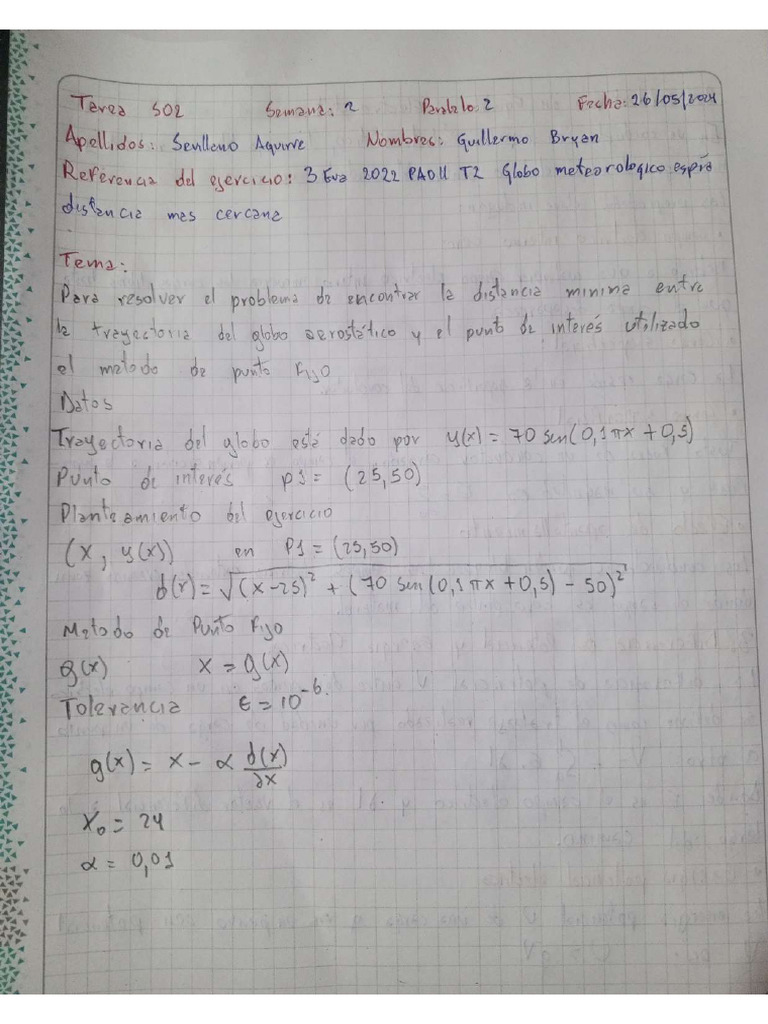 Tarea S02 Semana: 2 Paralelo: 2 Fecha: 26/05/2024
Apellidos: Sevlleno Aguirre Nombres: Guillermo Bryan
Referencia del ejercicio: 3 Eva 2022 PAO II T2 Globo meteorologico espía
distancia mas cercana
Tema:
Para resolver el problema de encontrar la distancia minima entre
la trayectoria del globo aerostático y el punto de interés utilizado
el metodo de punto Fijo
Datos
Trayectoria del globo está dado por y(x) = 70 sen(0,1πx + 0,5)
Punto de interés p1 = (25,50)
Planteamiento del ejercicio
(x, y(x)) en P1 = (25,50)
d(r) = √(x-25)² + (70 sen(0,1πx + 0,5) - 50)²
Metodo de Punto Fijo
g(x) x = g(x)
Tolerancia ε = 10⁻⁶.
g(x) = x - α d(x)/∂x
x₀ = 24
α = 0,01